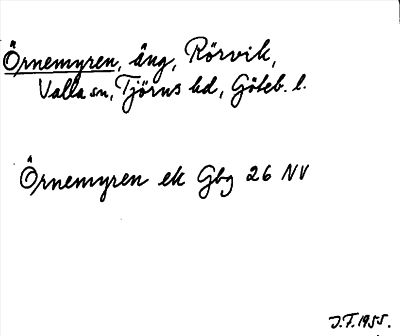 Örnemyren, äng, Rörvik,
Valla sn, Tjörns hd, Göteb. l.
Örnemyren ek Gbg 26 NV
J.F. 1955.